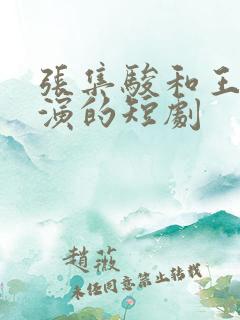 張集駿和王
演的短劇
趙薇
未經同意禁止轉載